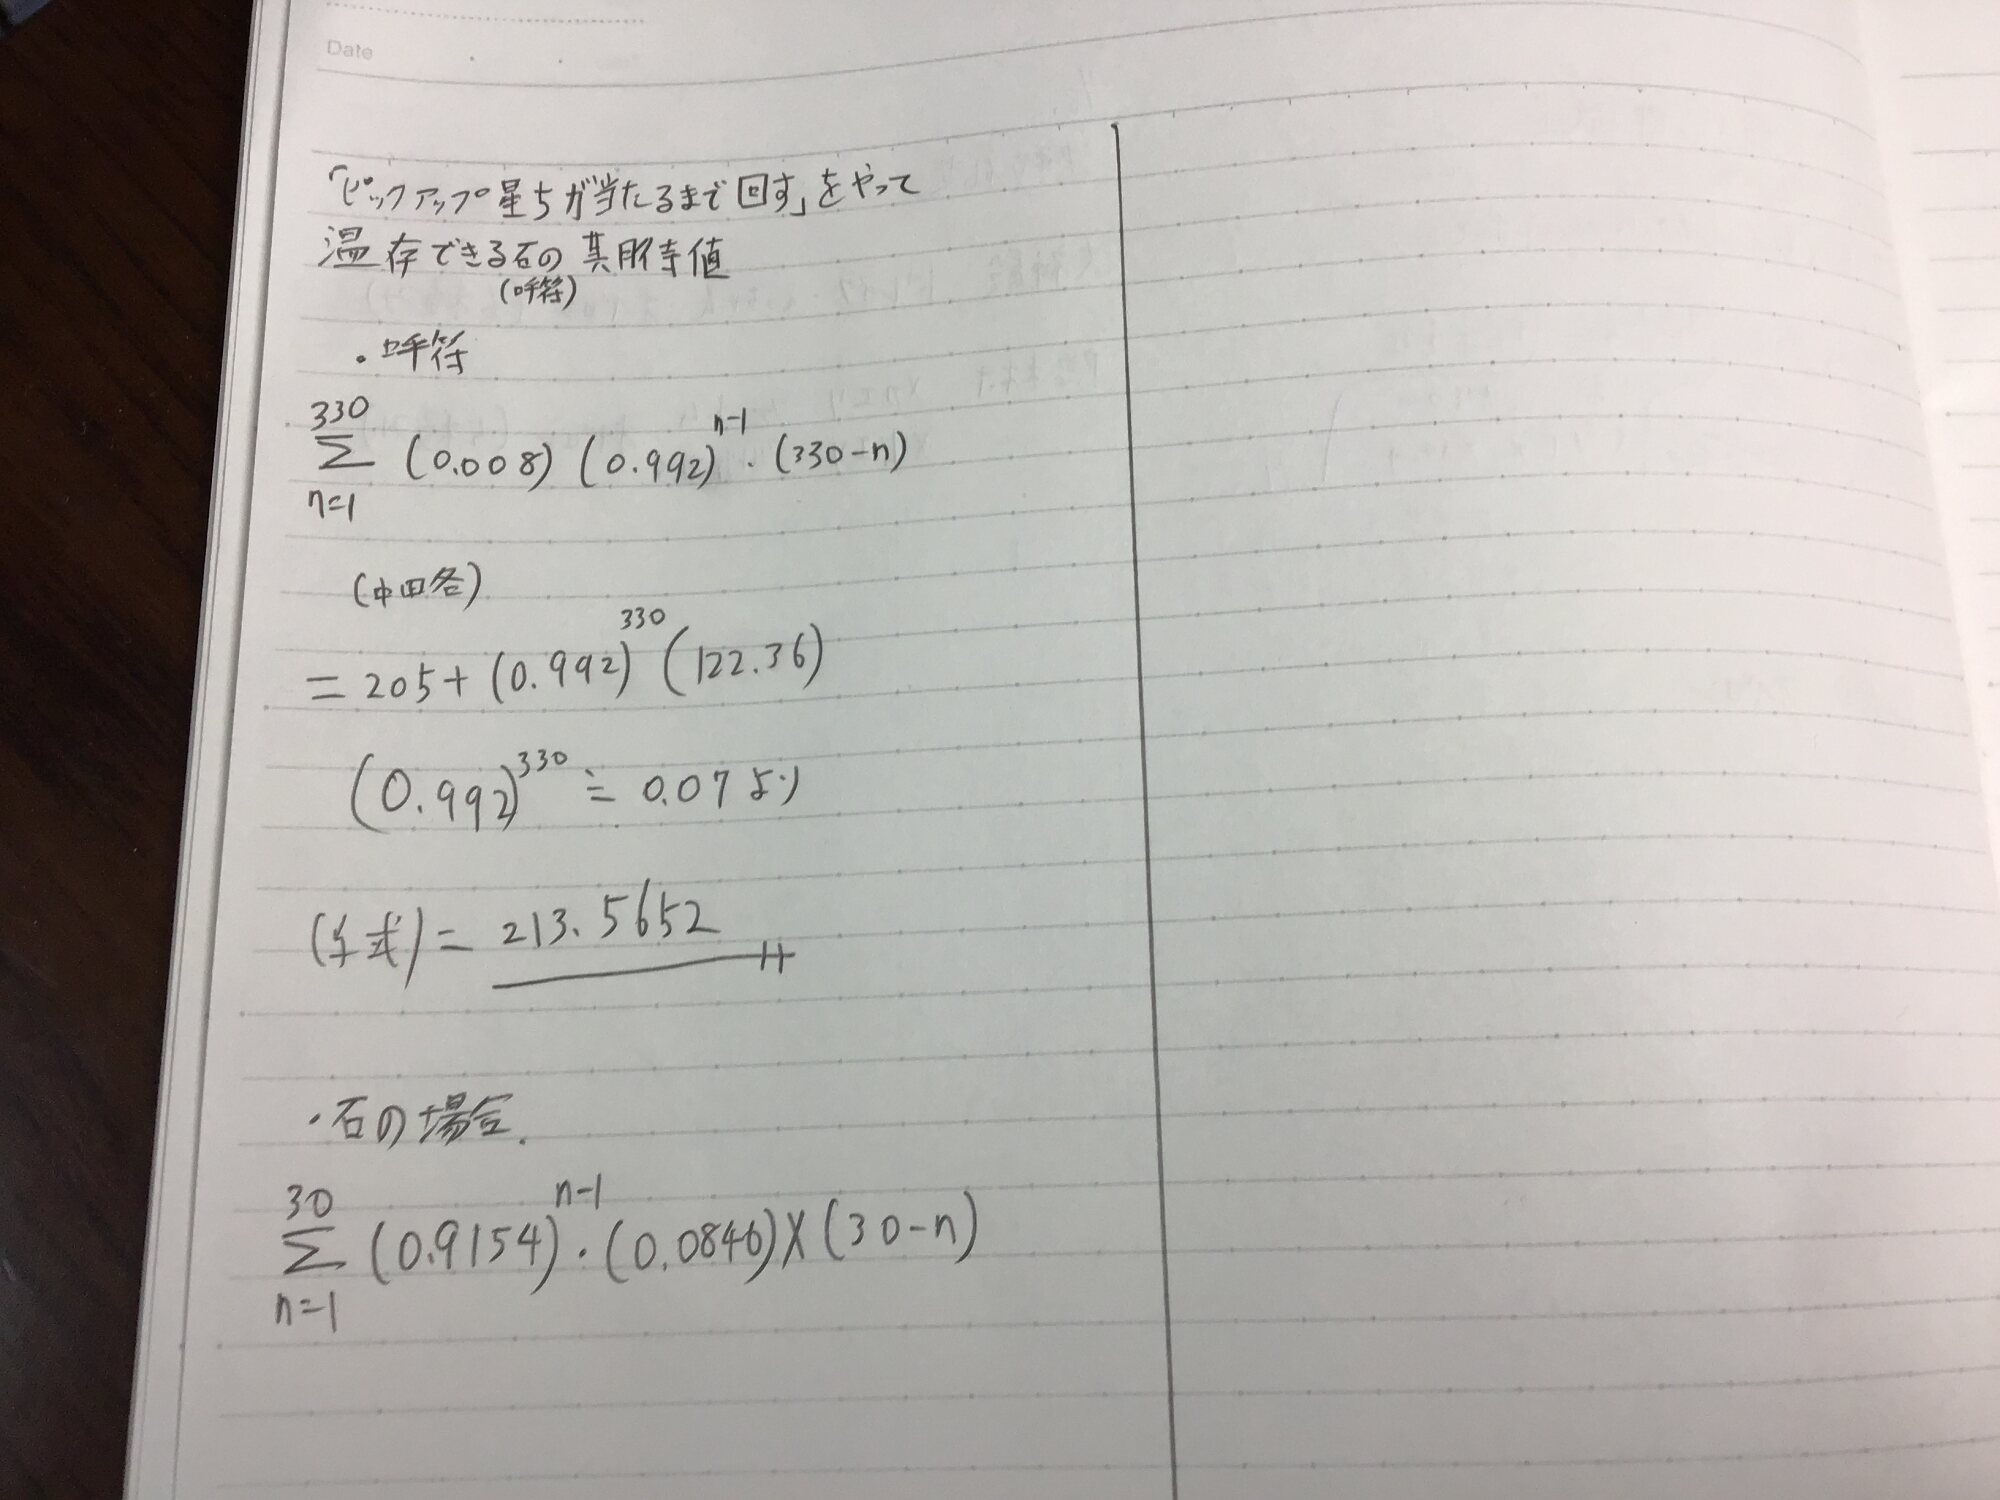 Date
「ピックアップ星5が当たるまで回す」をやって
温存できる石の期待値
(呼符)
・呼符
330
Σ (0.008) (0.992)^{n-1} ・ (330-n)
n=1
(中略)
= 205 + (0.992)^{330} (122.36)
(0.992)^{330} ≒ 0.07 より
(与式) = 213.5652
・石の場合.
30
Σ (0.9154)^{n-1} ・ (0.0846) × (30-n)
n=1